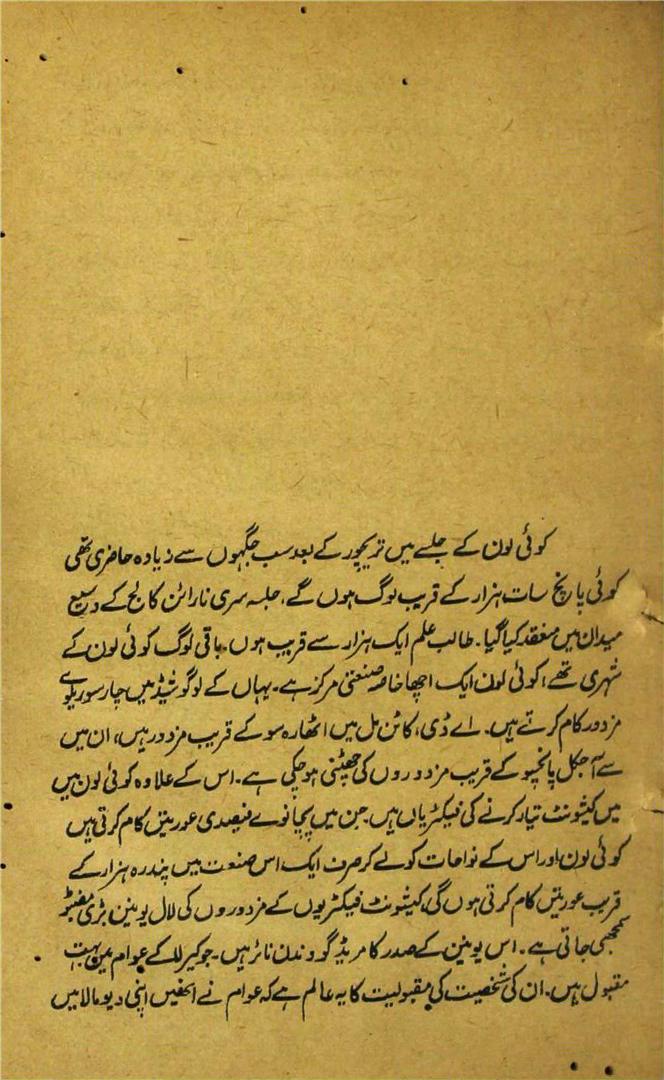 کوئی لون کے جلسے میں تریچور کے بعد سب جگہوں سے زیادہ حاضری تھی
کوئی پانچ سات ہزار کے قریب لوگ ہوں گے، جلسہ سری نارائن کالج کے وسیع
میدان میں منعقد کیا گیا۔ طالب علم ایک ہزار سے قریب ہوں، باقی لوگ کوئی لون کے
شہری تھے، کوئی لون ایک اچھا خاصہ صنعتی مرکز ہے۔ یہاں کے لوگو شیڈ میں چار سو ریلوے
مزدور کام کرتے ہیں۔ اے ڈی، کاٹن مل میں اٹھارہ سو کے قریب مزدور ہیں، ان میں
سے آجکل پانچسو کے قریب مزدوروں کی چھٹنی ہو چکی ہے۔ اس کے علاوہ کوئی لون میں
میں کیشونٹ تیار کرنے کی فیکٹریاں ہیں۔ جن میں پچانوے فیصدی عورتیں کام کرتی ہیں
کوئی لون اور اس کے نواحات کو لے کر صرف ایک اس صنعت میں پندرہ ہزار کے
قریب عورتیں کام کرتی ہوں گی، کیشونٹ فیکٹریوں کے مزدوروں کی لال یونین بڑی مضبوط
سمجھی جاتی ہے۔ اس یونین کے صدر کامریڈ گووندن نائر ہیں۔ جو کیرالہ کے عوام میں بہت
مقبول ہیں۔ ان کی شخصیت کی مقبولیت کا یہ عالم ہے کہ عوام نے انھیں اپنی دیومالا میں